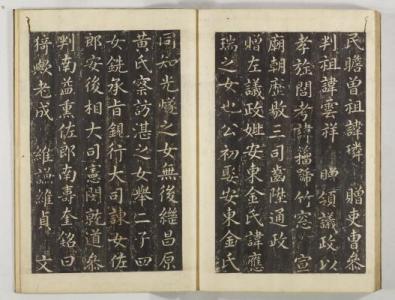 民瞻曾祖諱璘 贈吏曹叅
判祖諱雲祥 贈領議政以
孝旌閭考諱 號竹窓 宣
廟朝歷敭三司 陞通政
贈左議政妣安東金氏諱應
瑞之女也公初娶安東金氏
同知光煥之女無後繼昌原
黃氏察訪湛之女擧二子四
女銑承旨 行大司諫女佐
郎安後相大司憲閔就道叅
判南益熏佐郎南壽奎銘曰
猗歟老成 維謚維貞 文